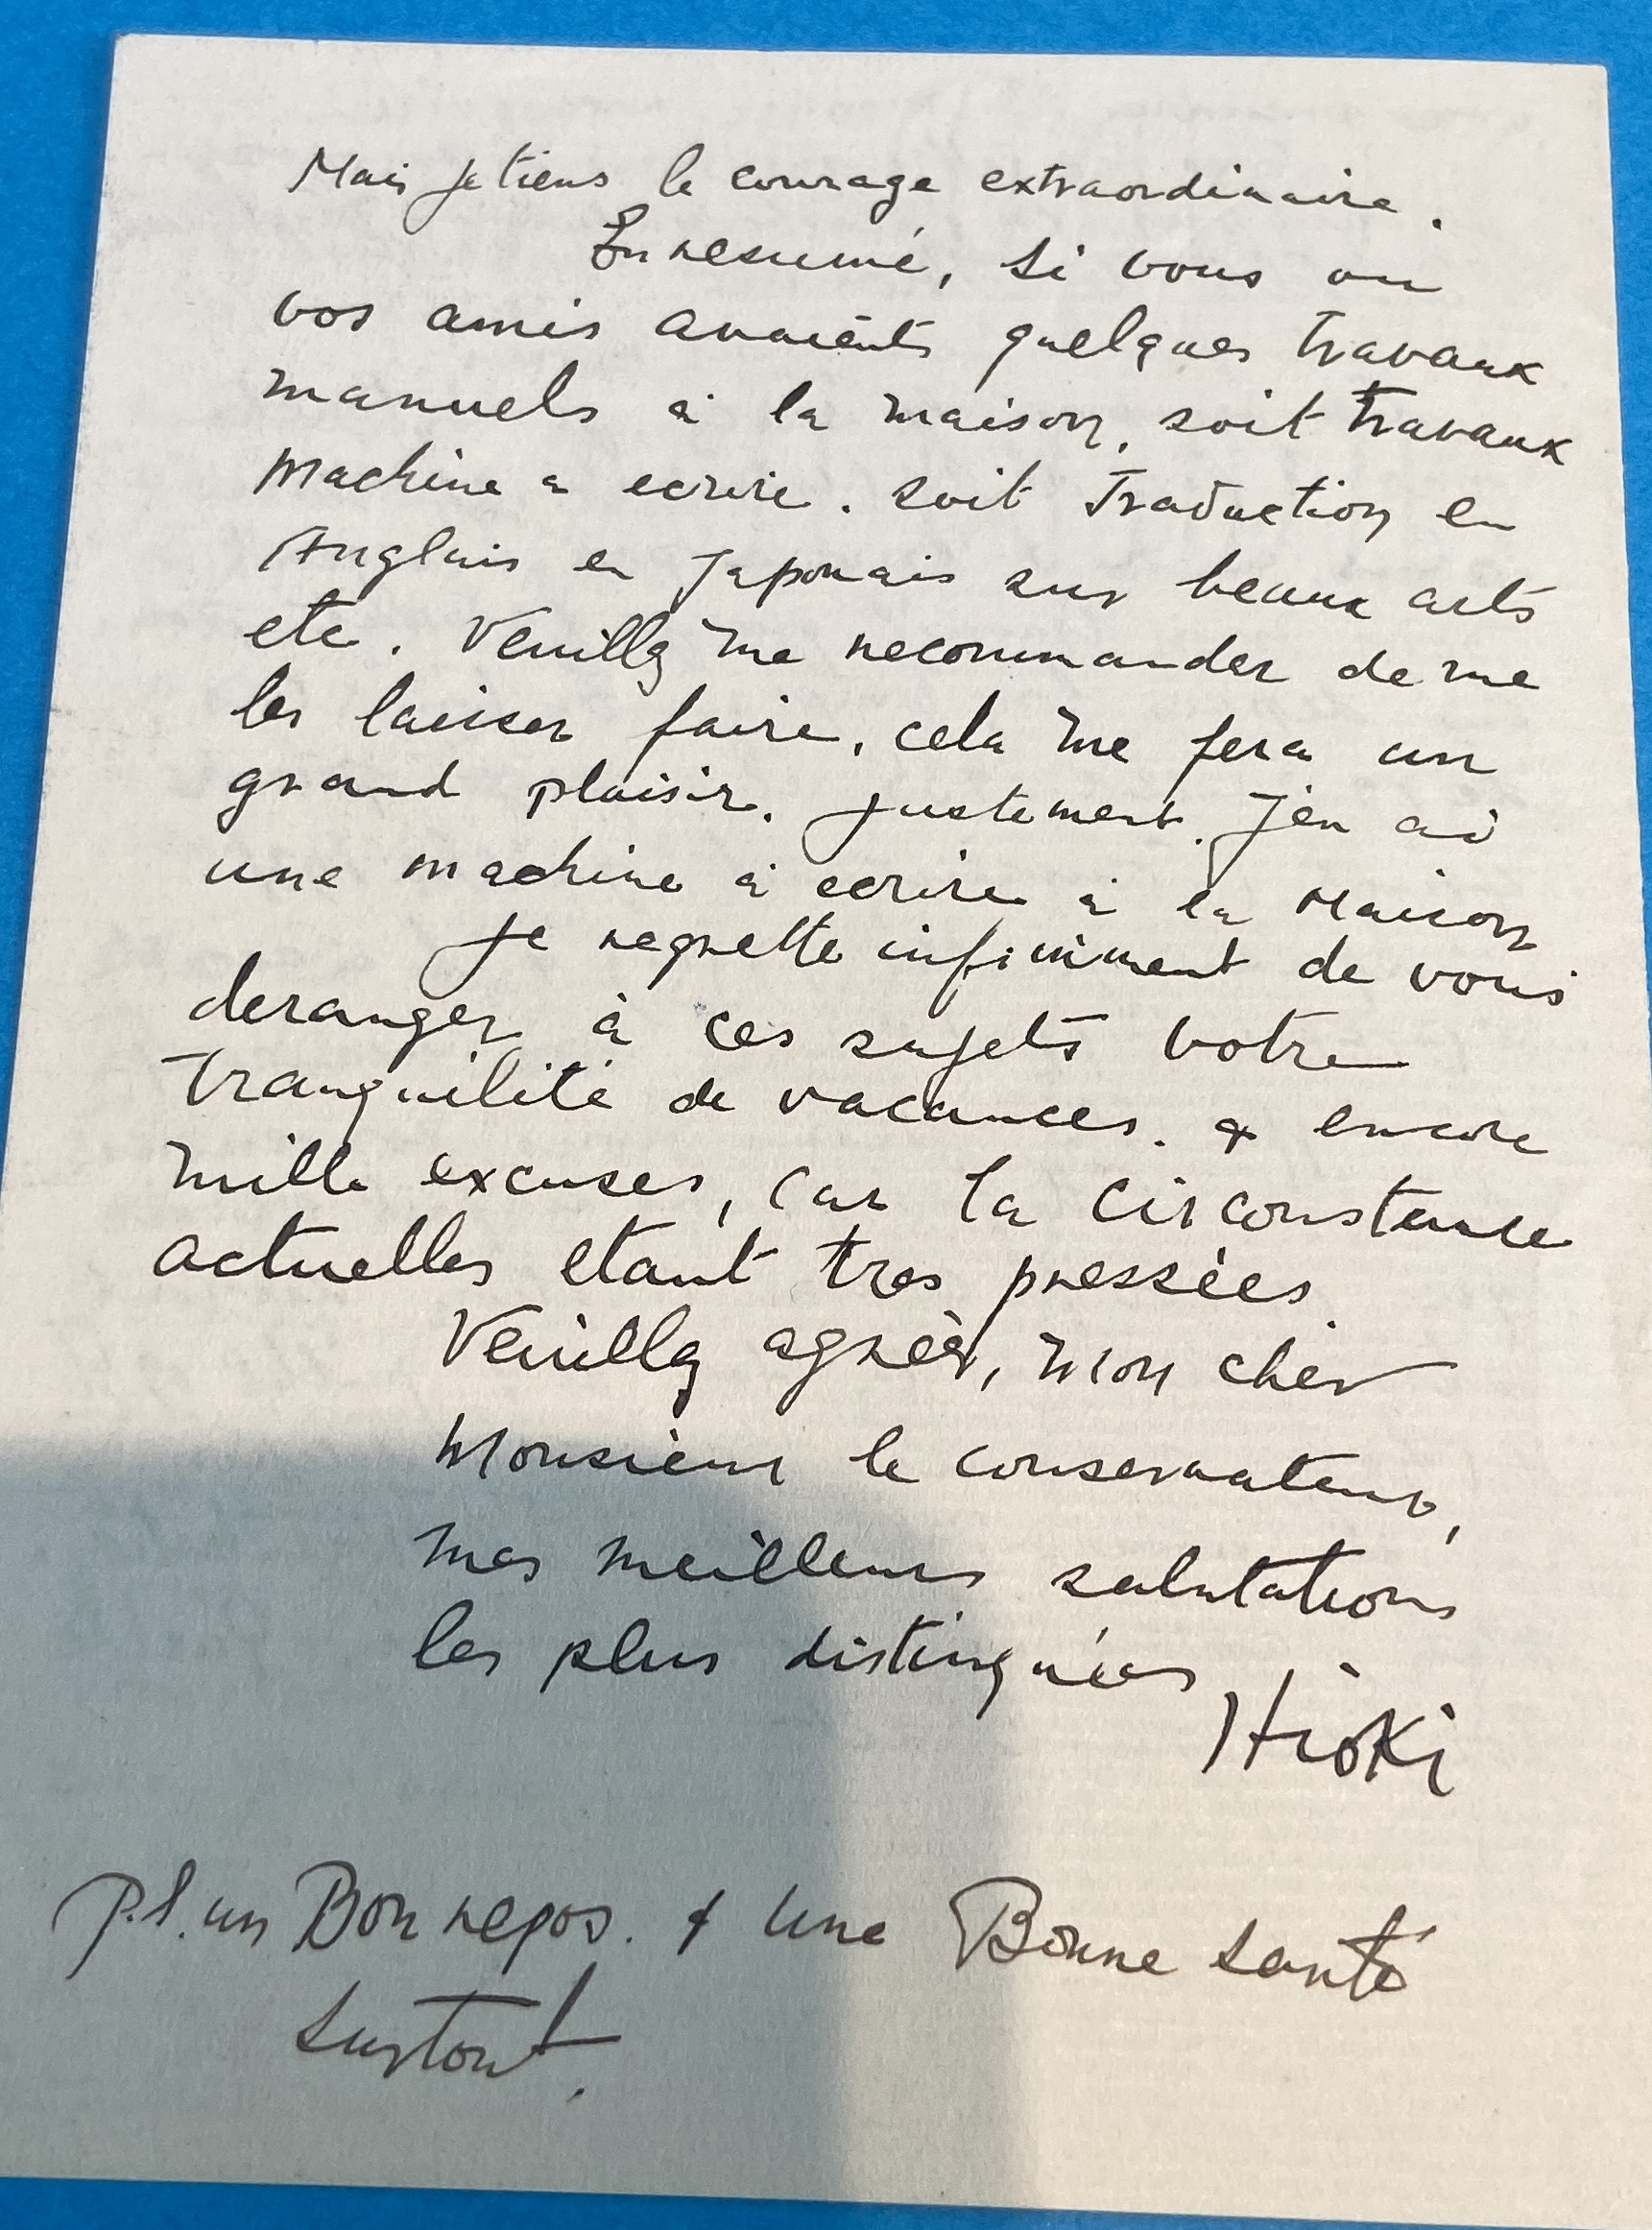 Mais je tiens le courage extraordinaire.
En resumé, si vous ou
vos amis avaients quelques travaux
manuels à la maison, soit travaux
machine a ecrire. soit Traduction en
Anglais en Japonais sur beaux arts
etc. Veuillez me recommander de me
les laisser faire, cela me fera un
grand plaisir. justement. J'en ai
une machine à ecrire à la Maison
Je regrette infiniment de vous
deranger à ces sujets votre
tranquilité de vacances. & encore
mille excuses, car la circonstance
actuelles etant tres pressées.
Veuillez agréer, mon cher
Monsieur le conservateur,
mes meilleurs salutations
les plus distinguées
Hioki
P.S. un Bon repos. & une Bonne santé
surtout.